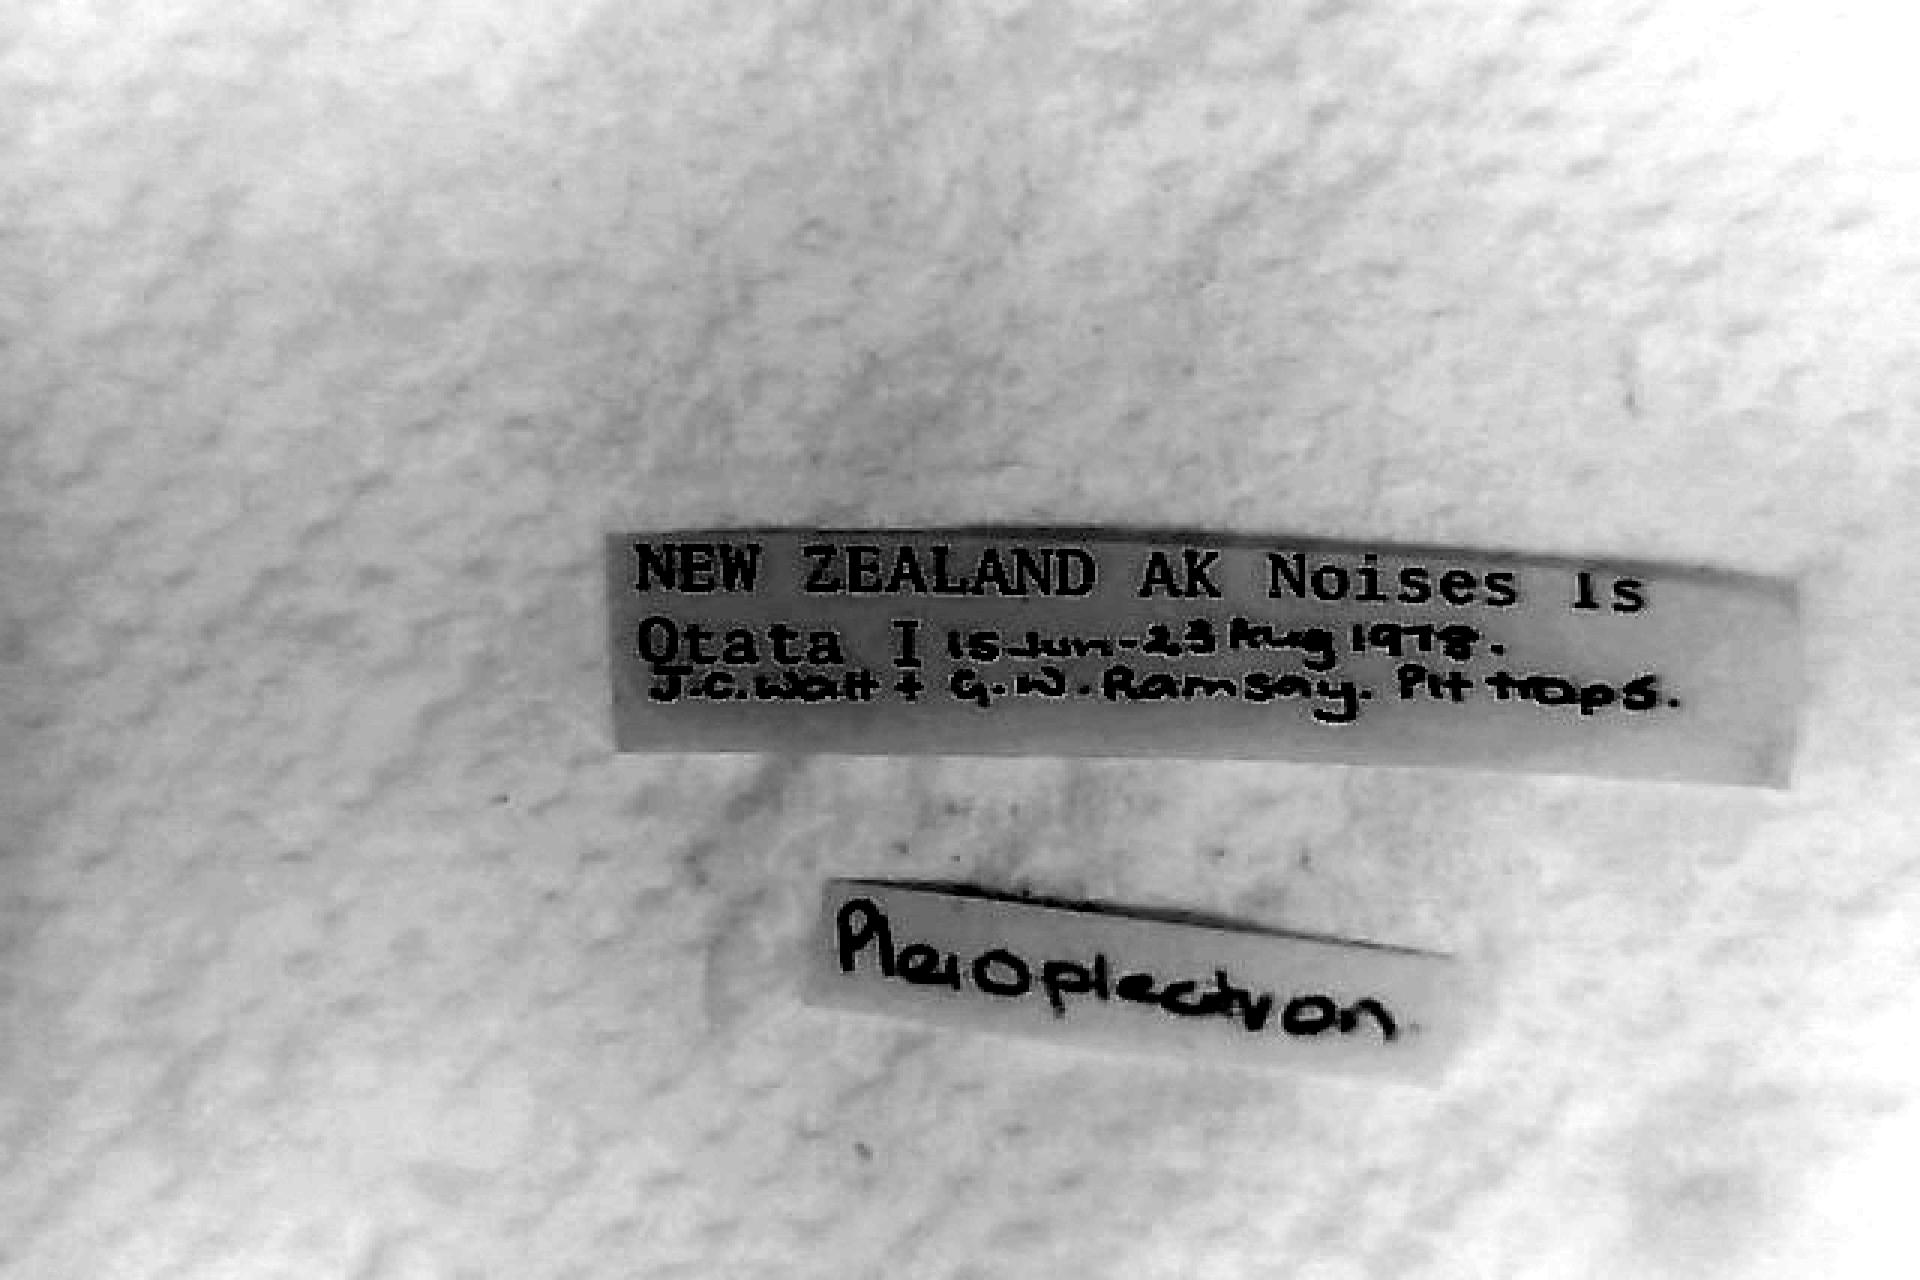 NEW ZEALAND AK Noises Is
Otata I 15 Jun-23 Aug 1978.
J.C. Watt + G.W. Ramsay. Pit traps.
Pleioplectron